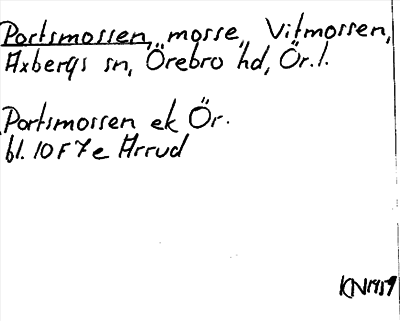 Portsmossen, mosse, Vitmossen,
Axbergs sn, Örebro hd, Ör. l.
Portsmossen ek Ör.
bl. 10 F 7 e Arrud
KN 1959